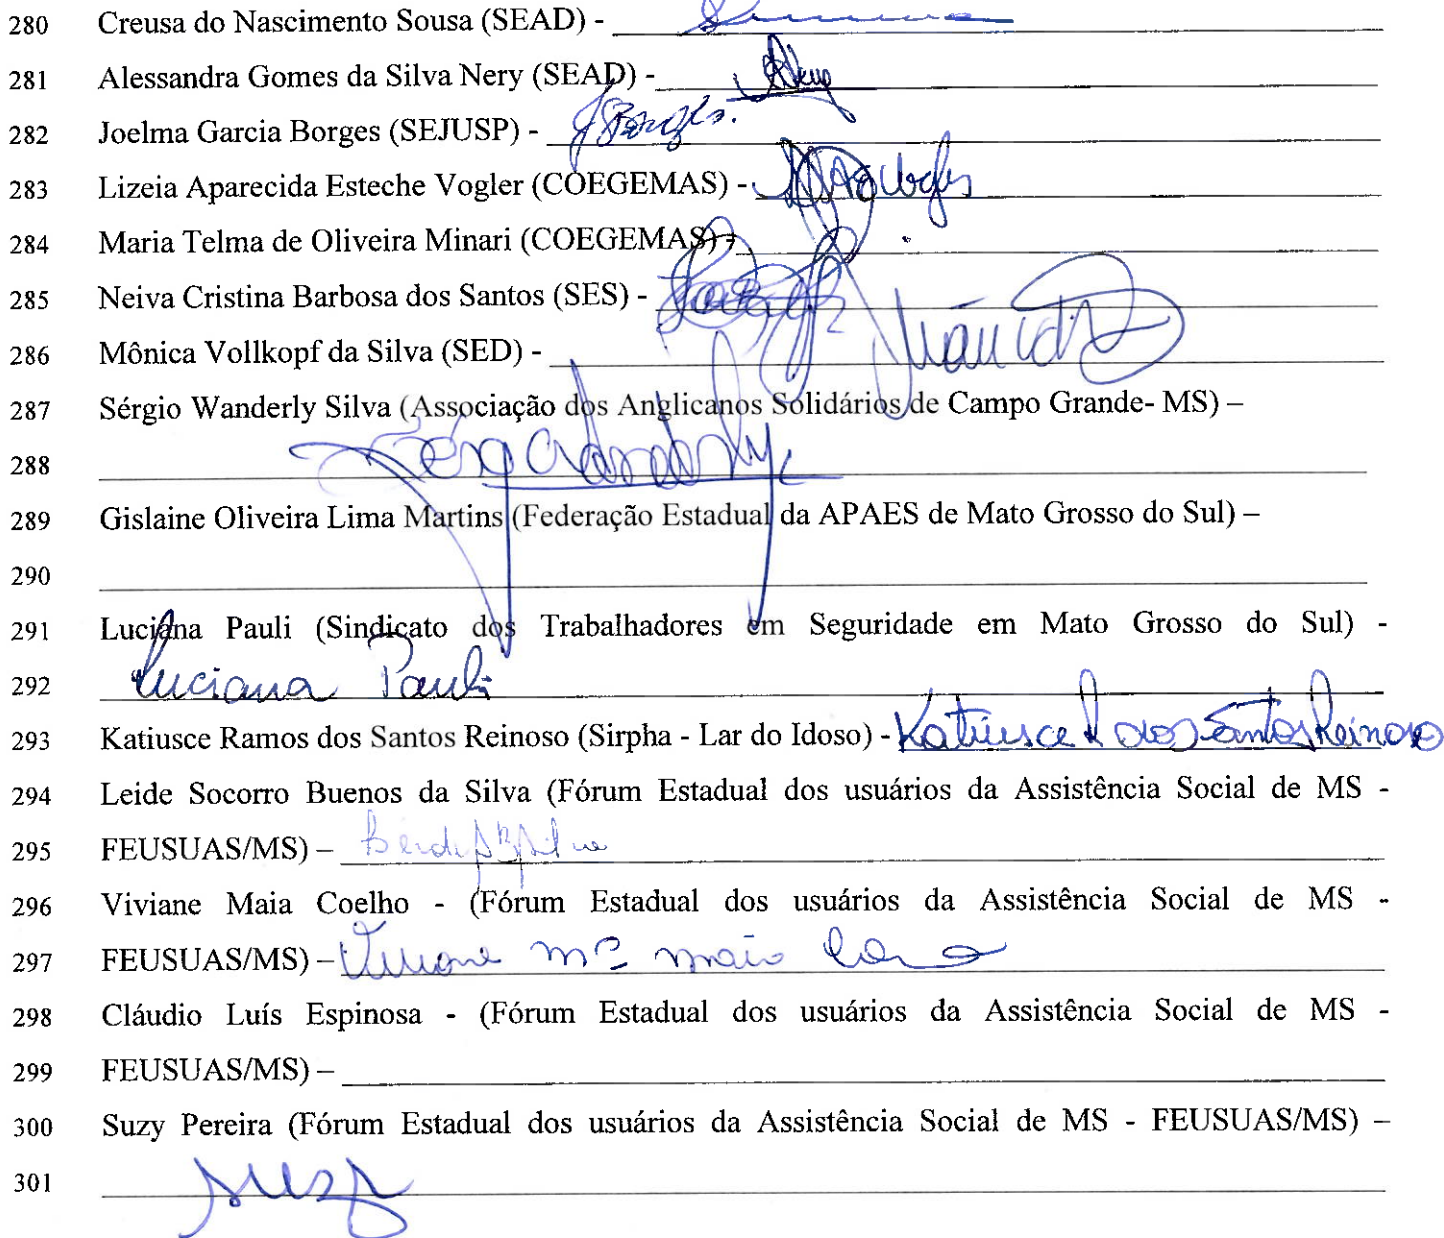 280 Creusa do Nascimento Sousa (SEAD) -
281 Alessandra Gomes da Silva Nery (SEAD) -
282 Joelma Garcia Borges (SEJUSP) - J Borges.
283 Lizeia Aparecida Esteche Vogler (COEGEMAS) -
284 Maria Telma de Oliveira Minari (COEGEMAS) -
285 Neiva Cristina Barbosa dos Santos (SES) -
286 Mônica Vollkopf da Silva (SED) -
287 Sérgio Wanderly Silva (Associação dos Anglicanos Solidários de Campo Grande- MS) –
288
289 Gislaine Oliveira Lima Martins (Federação Estadual da APAES de Mato Grosso do Sul) –
290
291 Luciana Pauli (Sindicato dos Trabalhadores em Seguridade em Mato Grosso do Sul) -
292 Luciana Pauli
293 Katiusce Ramos dos Santos Reinoso (Sirpha - Lar do Idoso) - Katiusce R dos Santos Reinoso
294 Leide Socorro Buenos da Silva (Fórum Estadual dos usuários da Assistência Social de MS -
295 FEUSUAS/MS) –
296 Viviane Maia Coelho - (Fórum Estadual dos usuários da Assistência Social de MS -
297 FEUSUAS/MS) –
298 Cláudio Luís Espinosa - (Fórum Estadual dos usuários da Assistência Social de MS -
299 FEUSUAS/MS) –
300 Suzy Pereira (Fórum Estadual dos usuários da Assistência Social de MS - FEUSUAS/MS) –
301 Suzy